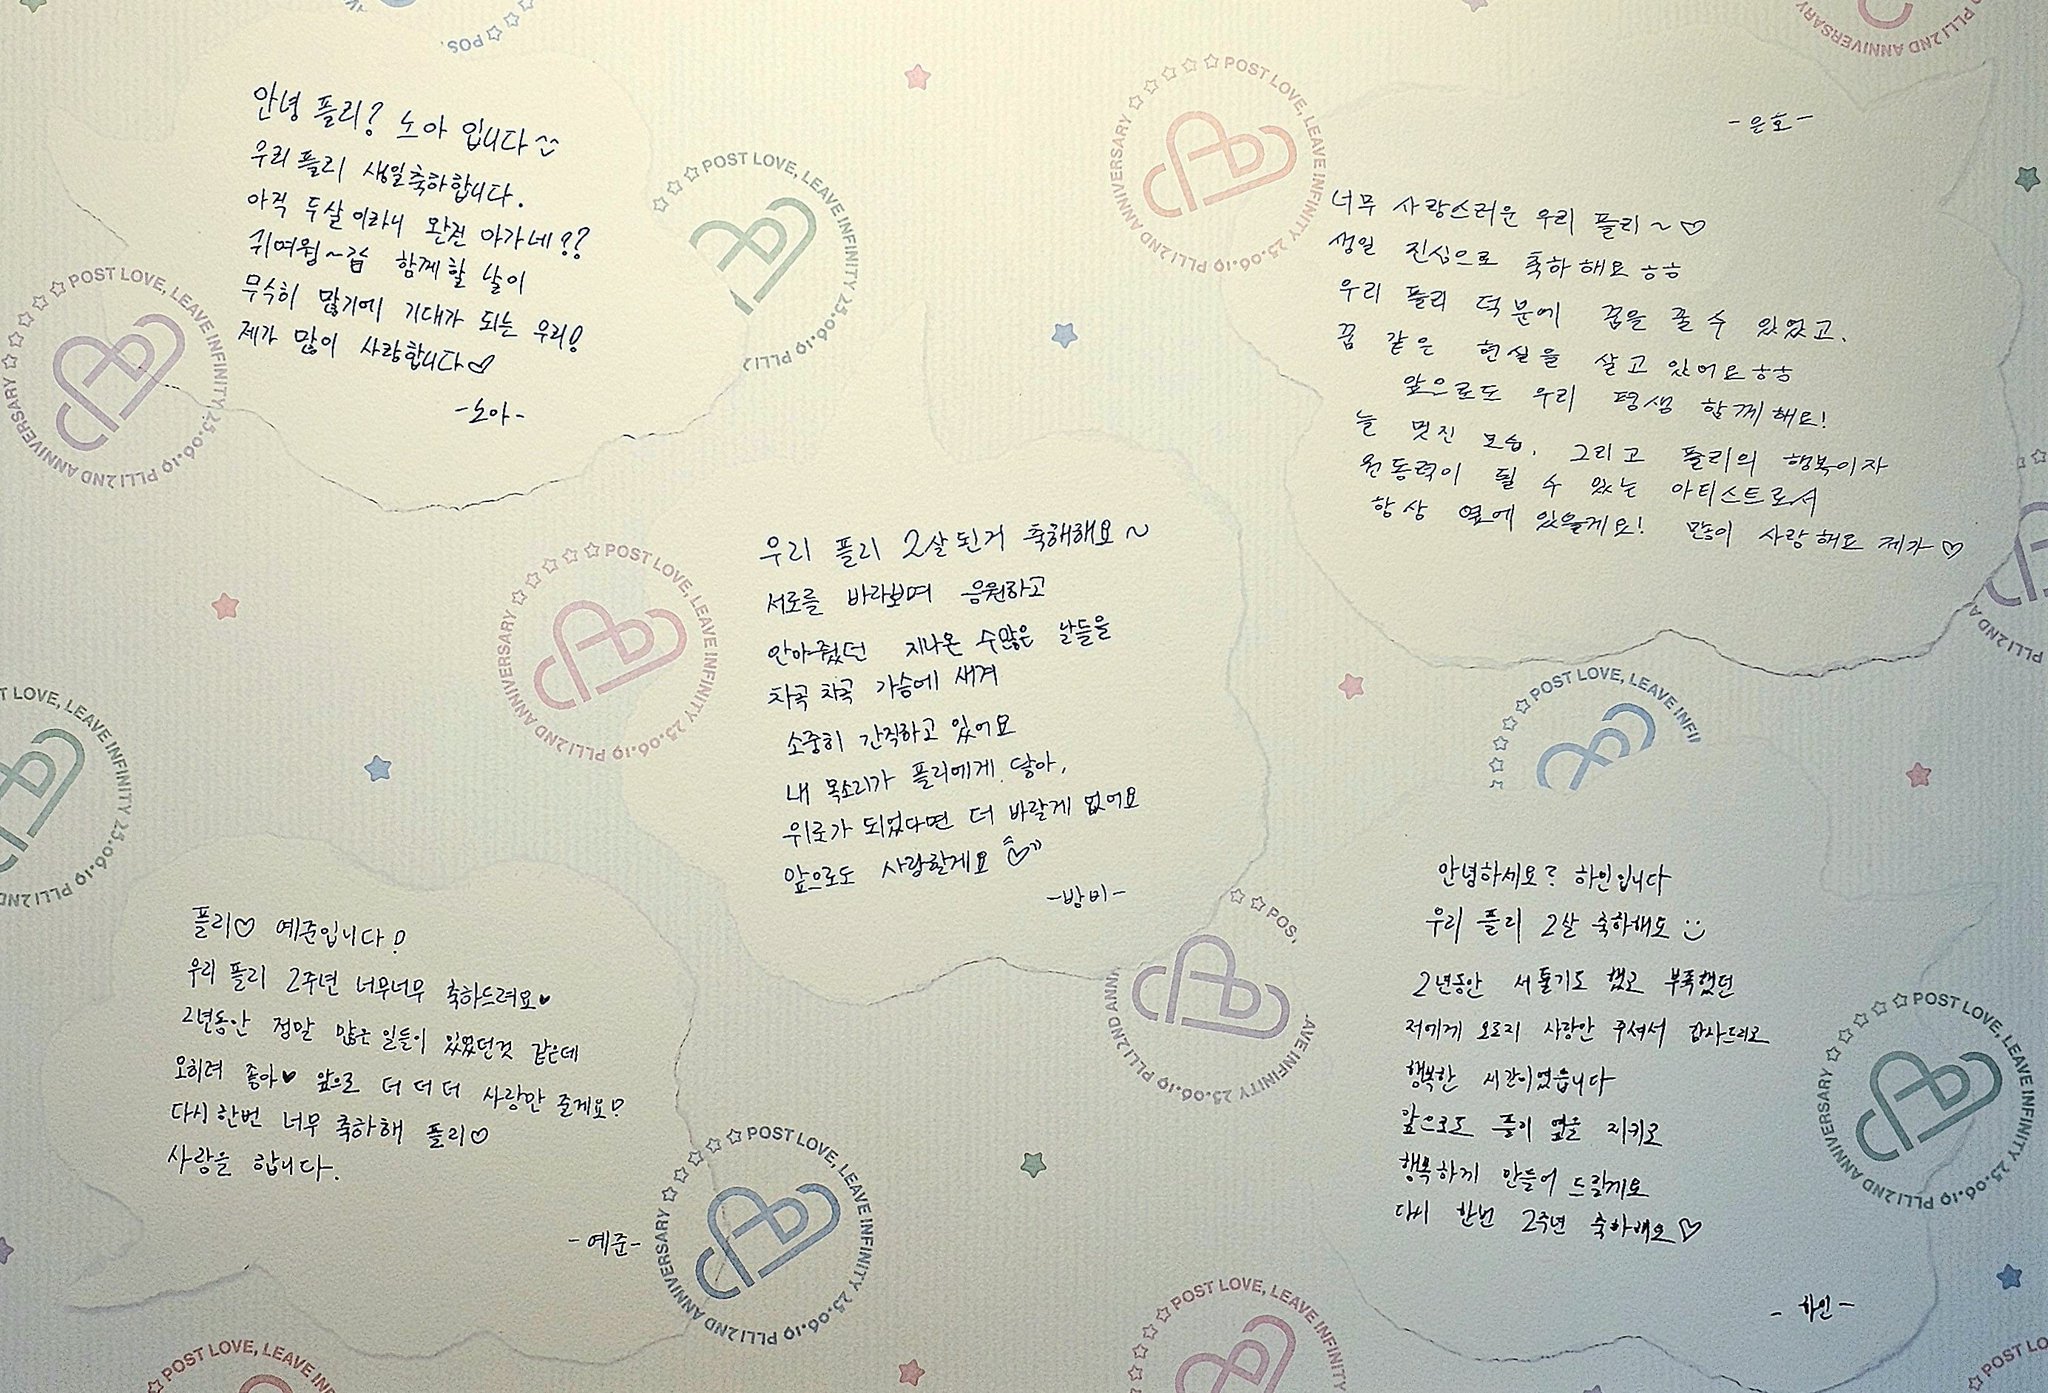 안녕 플리? 노아 입니다^^
우리 플리 생일축하합니다.
아직 두살이라니 완전 아가네??
귀여웡~ 함께 할 날이
무수히 많기에 기대가 되는 우리!
제가 많이 사랑합니다♡
-노아-
-은호-
너무 사랑스러운 우리 플리~♡
생일 진심으로 축하해요ㅎㅎ
우리 플리 덕분에 꿈을 꿀 수 있었고,
꿈 같은 현실을 살고 있어요ㅎㅎ
앞으로도 우리 평생 함께해요!
늘 멋진 모습, 그리고 플리의 행복이자
원동력이 될 수 있는 아티스트로서
항상 옆에 있을게요! 많이 사랑해요 제가♡
우리 플리 2살된거 축해해요~
서로를 바라보며 응원하고
안아줬던 지나온 수많은 날들을
차곡차곡 가슴에 새겨
소중히 간직하고 있어요
내 목소리가 플리에게 닿아,
위로가 되었다면 더 바랄게 없어요
앞으로도 사랑할게요♡
-밤비-
플리♡ 예준입니다!
우리 플리 2주년 너무너무 축하드려요♥
2년동안 정말 많은 일들이 있었던것 같은데
오히려 좋아♥ 앞으로 더 더 더 사랑만 줄게요!
다시한번 너무 축하해 플리♡
사랑을 합니다.
-예준-
안녕하세요? 하민입니다
우리 플리 2살 축하해요
2년동안 서툴기도 했고 부족했던
저에게 오로지 사랑만 주셔서 감사드리고
행복한 시간이었습니다
앞으로도 플리 옆을 지키고
행복하게 만들어 드릴게요
다시 한번 2주년 축하해요♡
-하민-
POST LOVE, LEAVE INFINITY 25.06.19 PLLI 2ND ANNIVERSARY
POST LOVE, LEAVE INFINITY 25.06.19 PLLI 2
POST LOVE, LEAVE INFINITY 25.06.19 PLLI 2ND ANNIVERSARY
POST LOVE, LEAVE INFINITY 25.06.19 PLLI 2ND ANNIVERSARY
POST LOVE, LEAVE INFI
T LOVE, LEAVE INFINITY 25.06.19 PLLI 2
POST LOVE, LEAVE INFINITY 25.06.19 PLLI 2ND ANNIVERSARY
POST LOVE, LEAVE INFINITY 25.06.19 PLLI 2ND ANNIVERSARY
POST LOVE, LEAVE INFIN
POST LOVE, LEAVE INFINITY